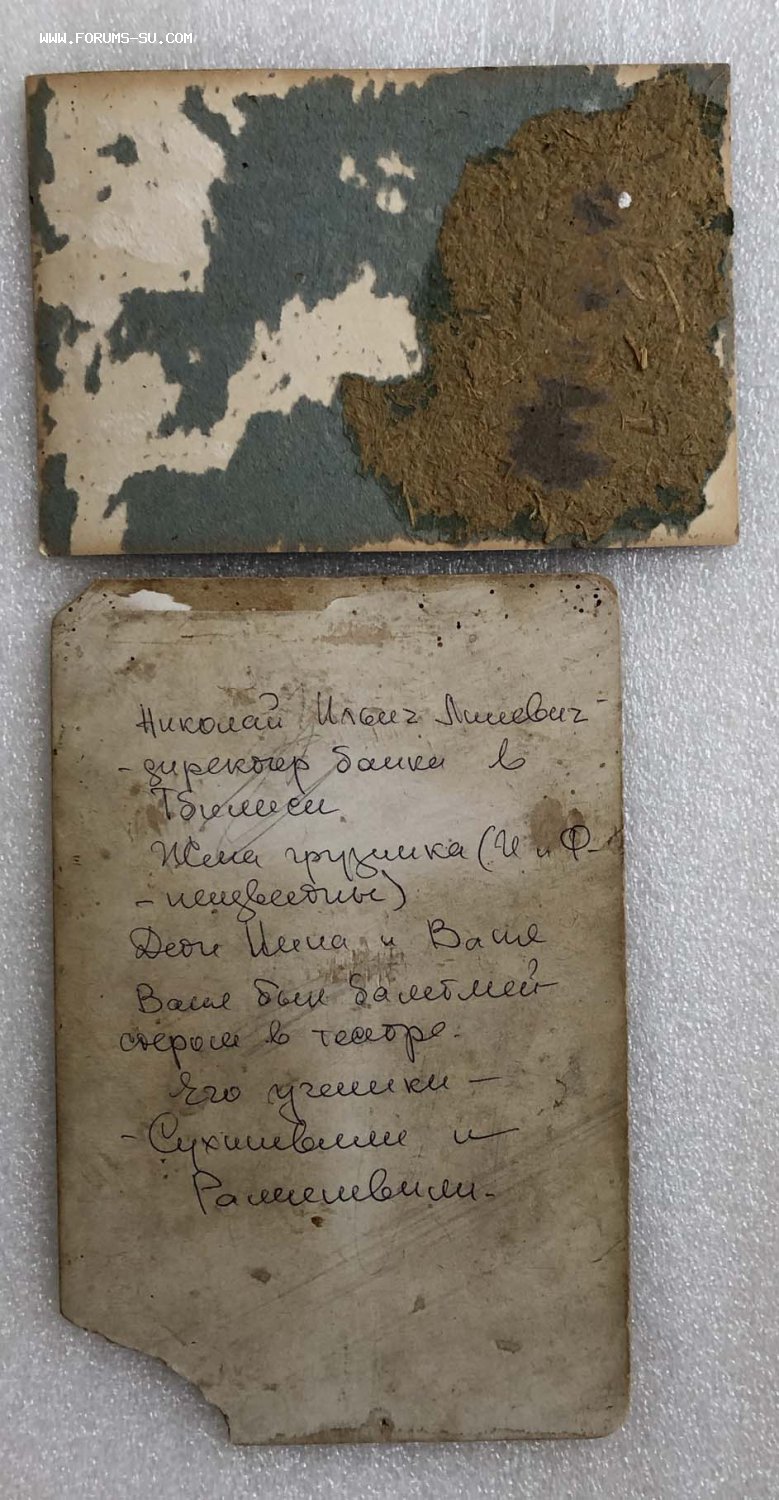 WWW.FORUMS-SU.COM
Николай Ильич Линевич -
- директор банка в
Тбилиси
Жена грузинка (И и Ф-
- неизвестны)
Дети Нина и Ваня
Ваня был балетмей-
стером в театре.
Его ученики -
- Сухишвили и
Рамишвили.